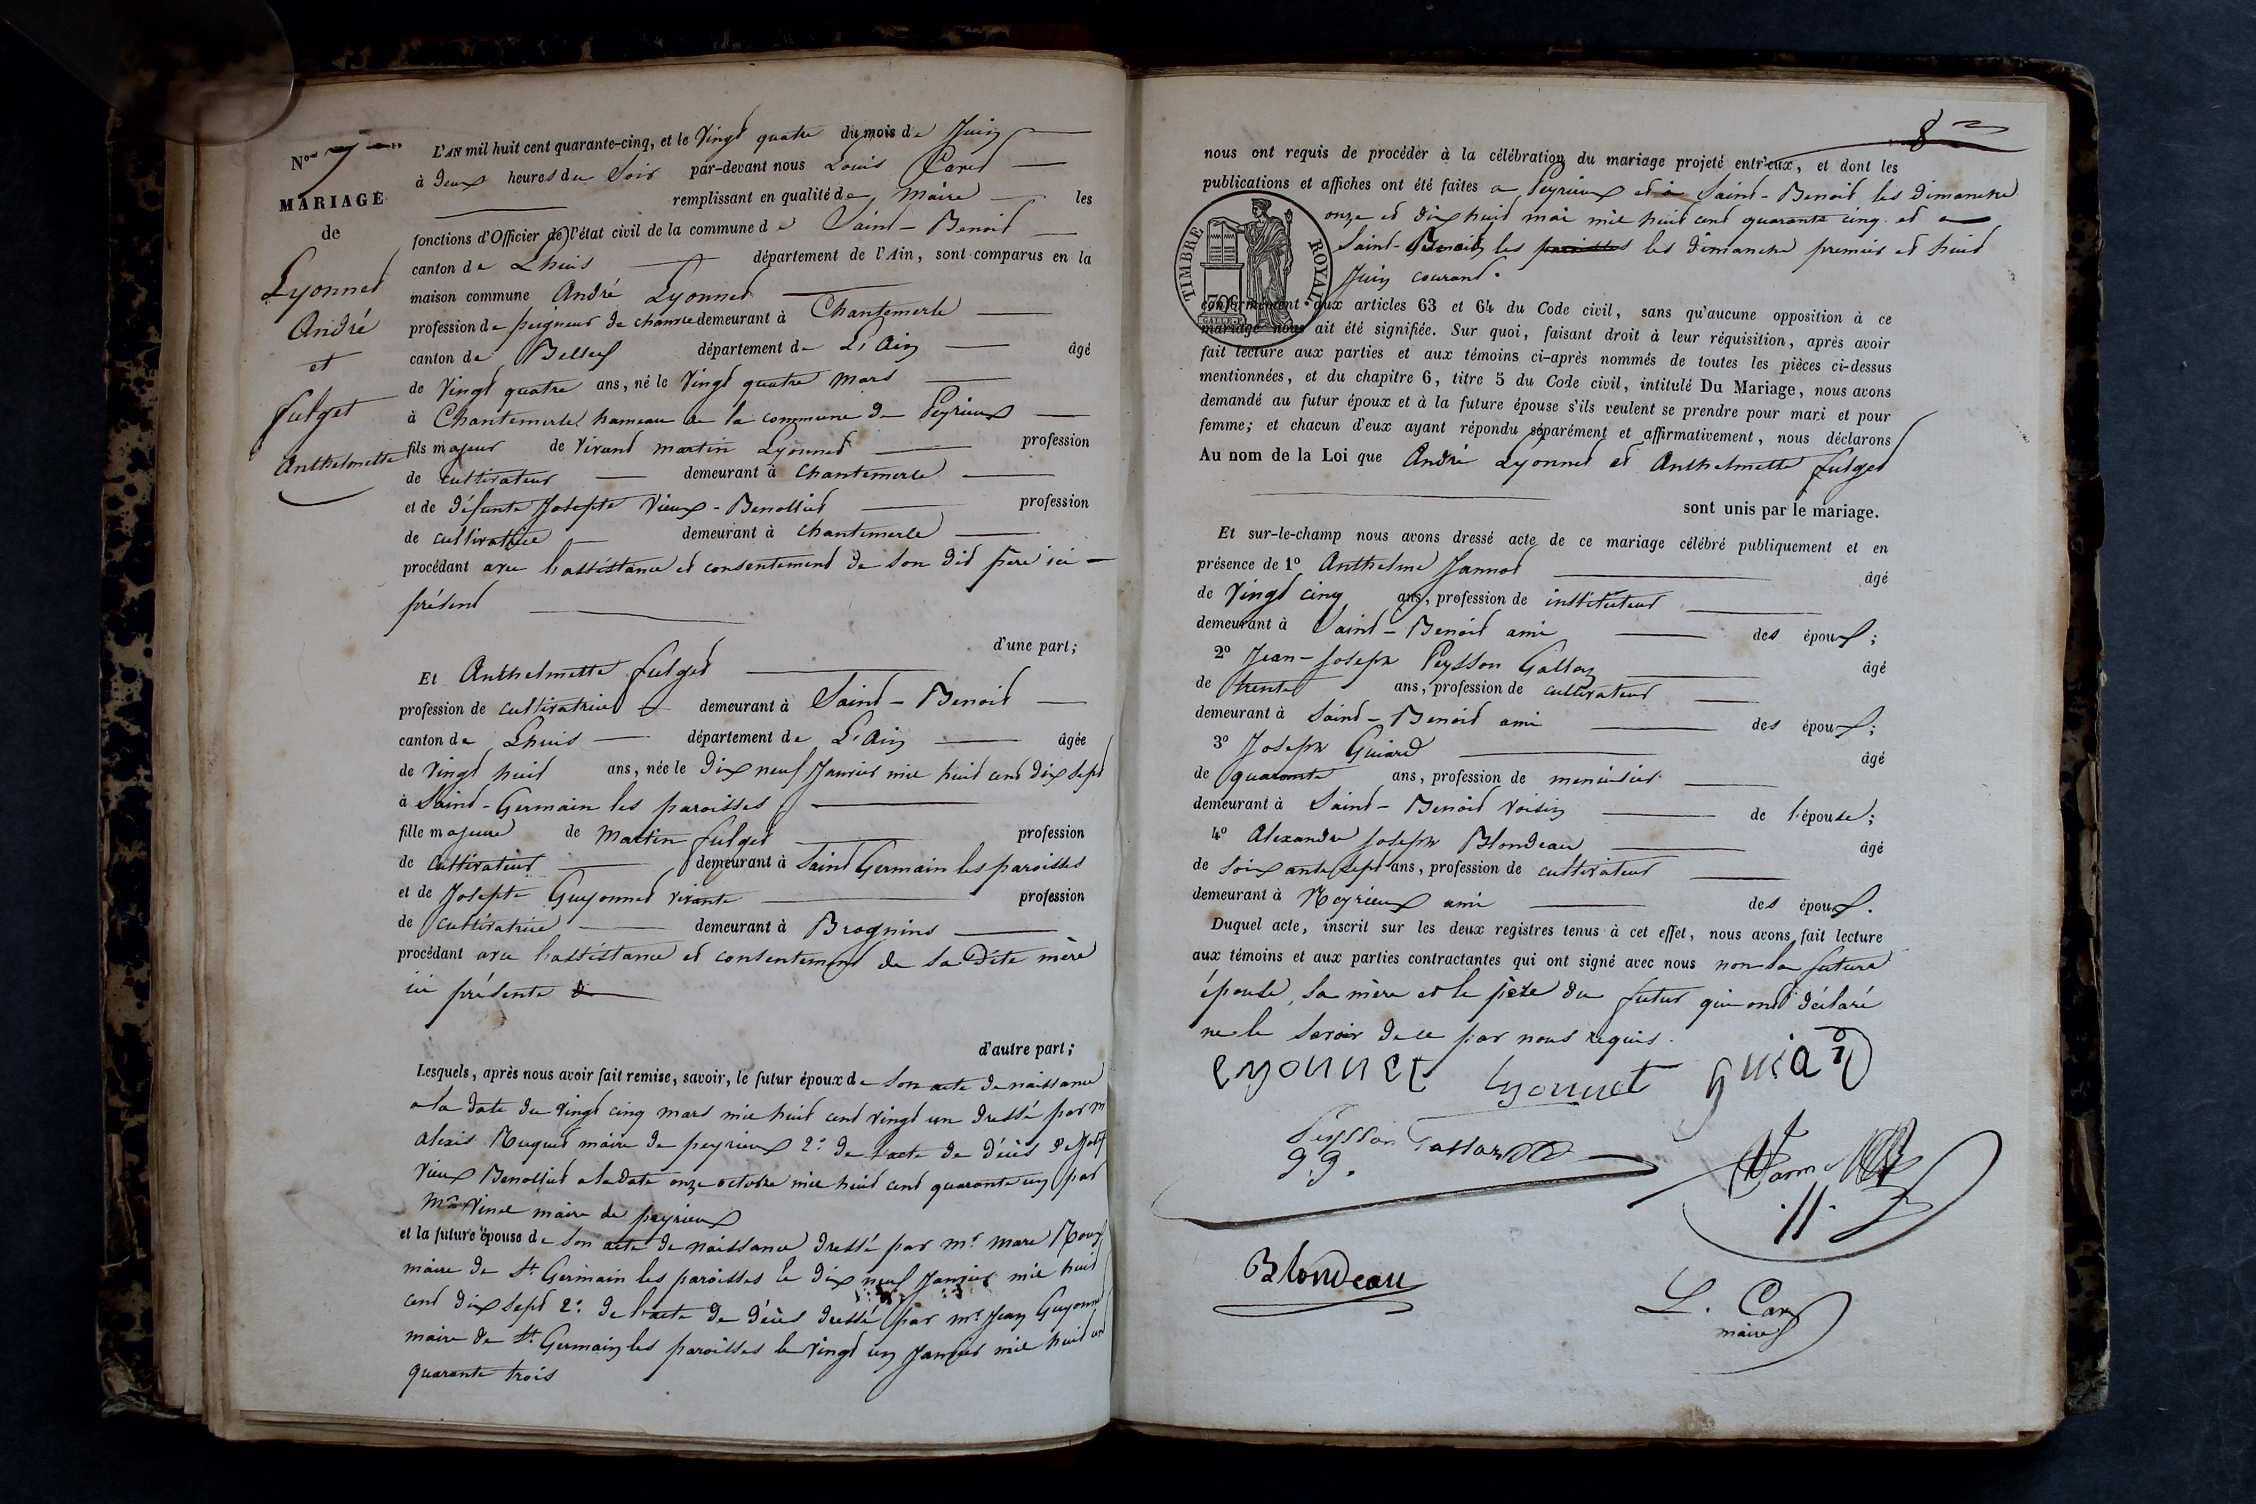 Nos 7
MARIAGE
de
Lyonnet
André
et
fulget
Anthelmette
L'AN mil huit cent quarante-cinq, et le Vingt quatre du mois de Juin
à Deux heures du Soir par-devant nous Louis Caret
remplissant en qualité de Maire les
fonctions d'Officier de l'état civil de la commune de Saint-Benoit
canton de Lhuis département de l'Ain, sont comparus en la
maison commune André Lyonnet
profession de peigneur de chanvre demeurant à Chantemerle
canton de Belley département de L'Ain âgé
de Vingt quatre ans, né le Vingt quatre Mars
à Chantemerle hameau de la commune de Peyrieux
fils majeur de Vivant Martin Lyonnet profession
de cultivateur demeurant à Chantemerle
et de défunte Josephte Vieux-Benolliet profession
de cultivatrice demeurant à Chantemerle
procédant avec l'assistance et consentement de son dit père ici
présent
d'une part;
Et Anthelmette fulget
profession de cultivatrice demeurant à Saint-Benoit
canton de Lhuis département de L'Ain âgée
de Vingt huit ans, née le Dix neuf Janvier mil huit cent dix sept
à Saint-Germain les paroisses
fille majeure de Martin fulget profession
de cultivateur demeurant à Saint Germain les paroisses
et de Josephte Guyonnet vivante profession
de cultivatrice demeurant à Brognins
procédant avec l'assistance et consentement de sa Dite mère
ici présente
d'autre part;
Lesquels, après nous avoir fait remise, savoir, le futur époux de son acte de naissance
a la date du vingt cinq mars mil huit cent vingt un dressé par m
alexis Ruguet maire de peyrieux 2° de l'acte de décès de
Vieux Benolliet a la date onze octobre mil huit cent quarante un par
Mr Vinet maire de peyrieux
et la future épouse de son acte de naissance dressé par mr marc Roux
maire de St Germain les paroisses le dix neuf Janvier mil huit
cent dix sept 2° de l'acte de décès dressé par mr Jean Guyonnet
maire de St Germain les paroisses le vingt un Janvier mil huit cent
quarante trois
8
nous ont requis de procéder à la célébration du mariage projeté entr'eux, et dont les
publications et affiches ont été faites a Peyrieux et à Saint-Benoit les dimanche
onze et dix huit mai mil huit cent quarante cinq et a
Saint-Benoit les paroisses les dimanche premier et huit
Juin courant.
TIMBRE ROYAL
conformément aux articles 63 et 64 du Code civil, sans qu'aucune opposition à ce
mariage nous ait été signifiée. Sur quoi, faisant droit à leur réquisition, après avoir
fait lecture aux parties et aux témoins ci-après nommés de toutes les pièces ci-dessus
mentionnées, et du chapitre 6, titre 5 du Code civil, intitulé Du Mariage, nous avons
demandé au futur époux et à la future épouse s'ils veulent se prendre pour mari et pour
femme; et chacun d'eux ayant répondu séparément et affirmativement, nous déclarons
Au nom de la Loi que André Lyonnet et Anthelmette fulget
sont unis par le mariage.
Et sur-le-champ nous avons dressé acte de ce mariage célébré publiquement et en
présence de 1° Anthelme Jannot âgé
de Vingt cinq ans, profession de instituteur
demeurant à Saint-Benoit ami des époux;
2° Jean-Joseph Peysson Gallay âgé
de trente ans, profession de cultivateur
demeurant à Saint-Benoit ami des époux;
3° Joseph Guiard âgé
de quarante ans, profession de menuisier
demeurant à Saint-Benoit voisin de l'épouse;
4° Alexandre Joseph Blondeau âgé
de soixante sept ans, profession de cultivateur
demeurant à Meyrieux ami des époux.
Duquel acte, inscrit sur les deux registres tenus à cet effet, nous avons fait lecture
aux témoins et aux parties contractantes qui ont signé avec nous non la future
épouse, sa mère et le père du futur qui ont déclaré
ne le savoir de ce par nous requis.
Lyonnet Lyonnet guiard
Peysson
J. J.
Blondeau
L. Caret
maire